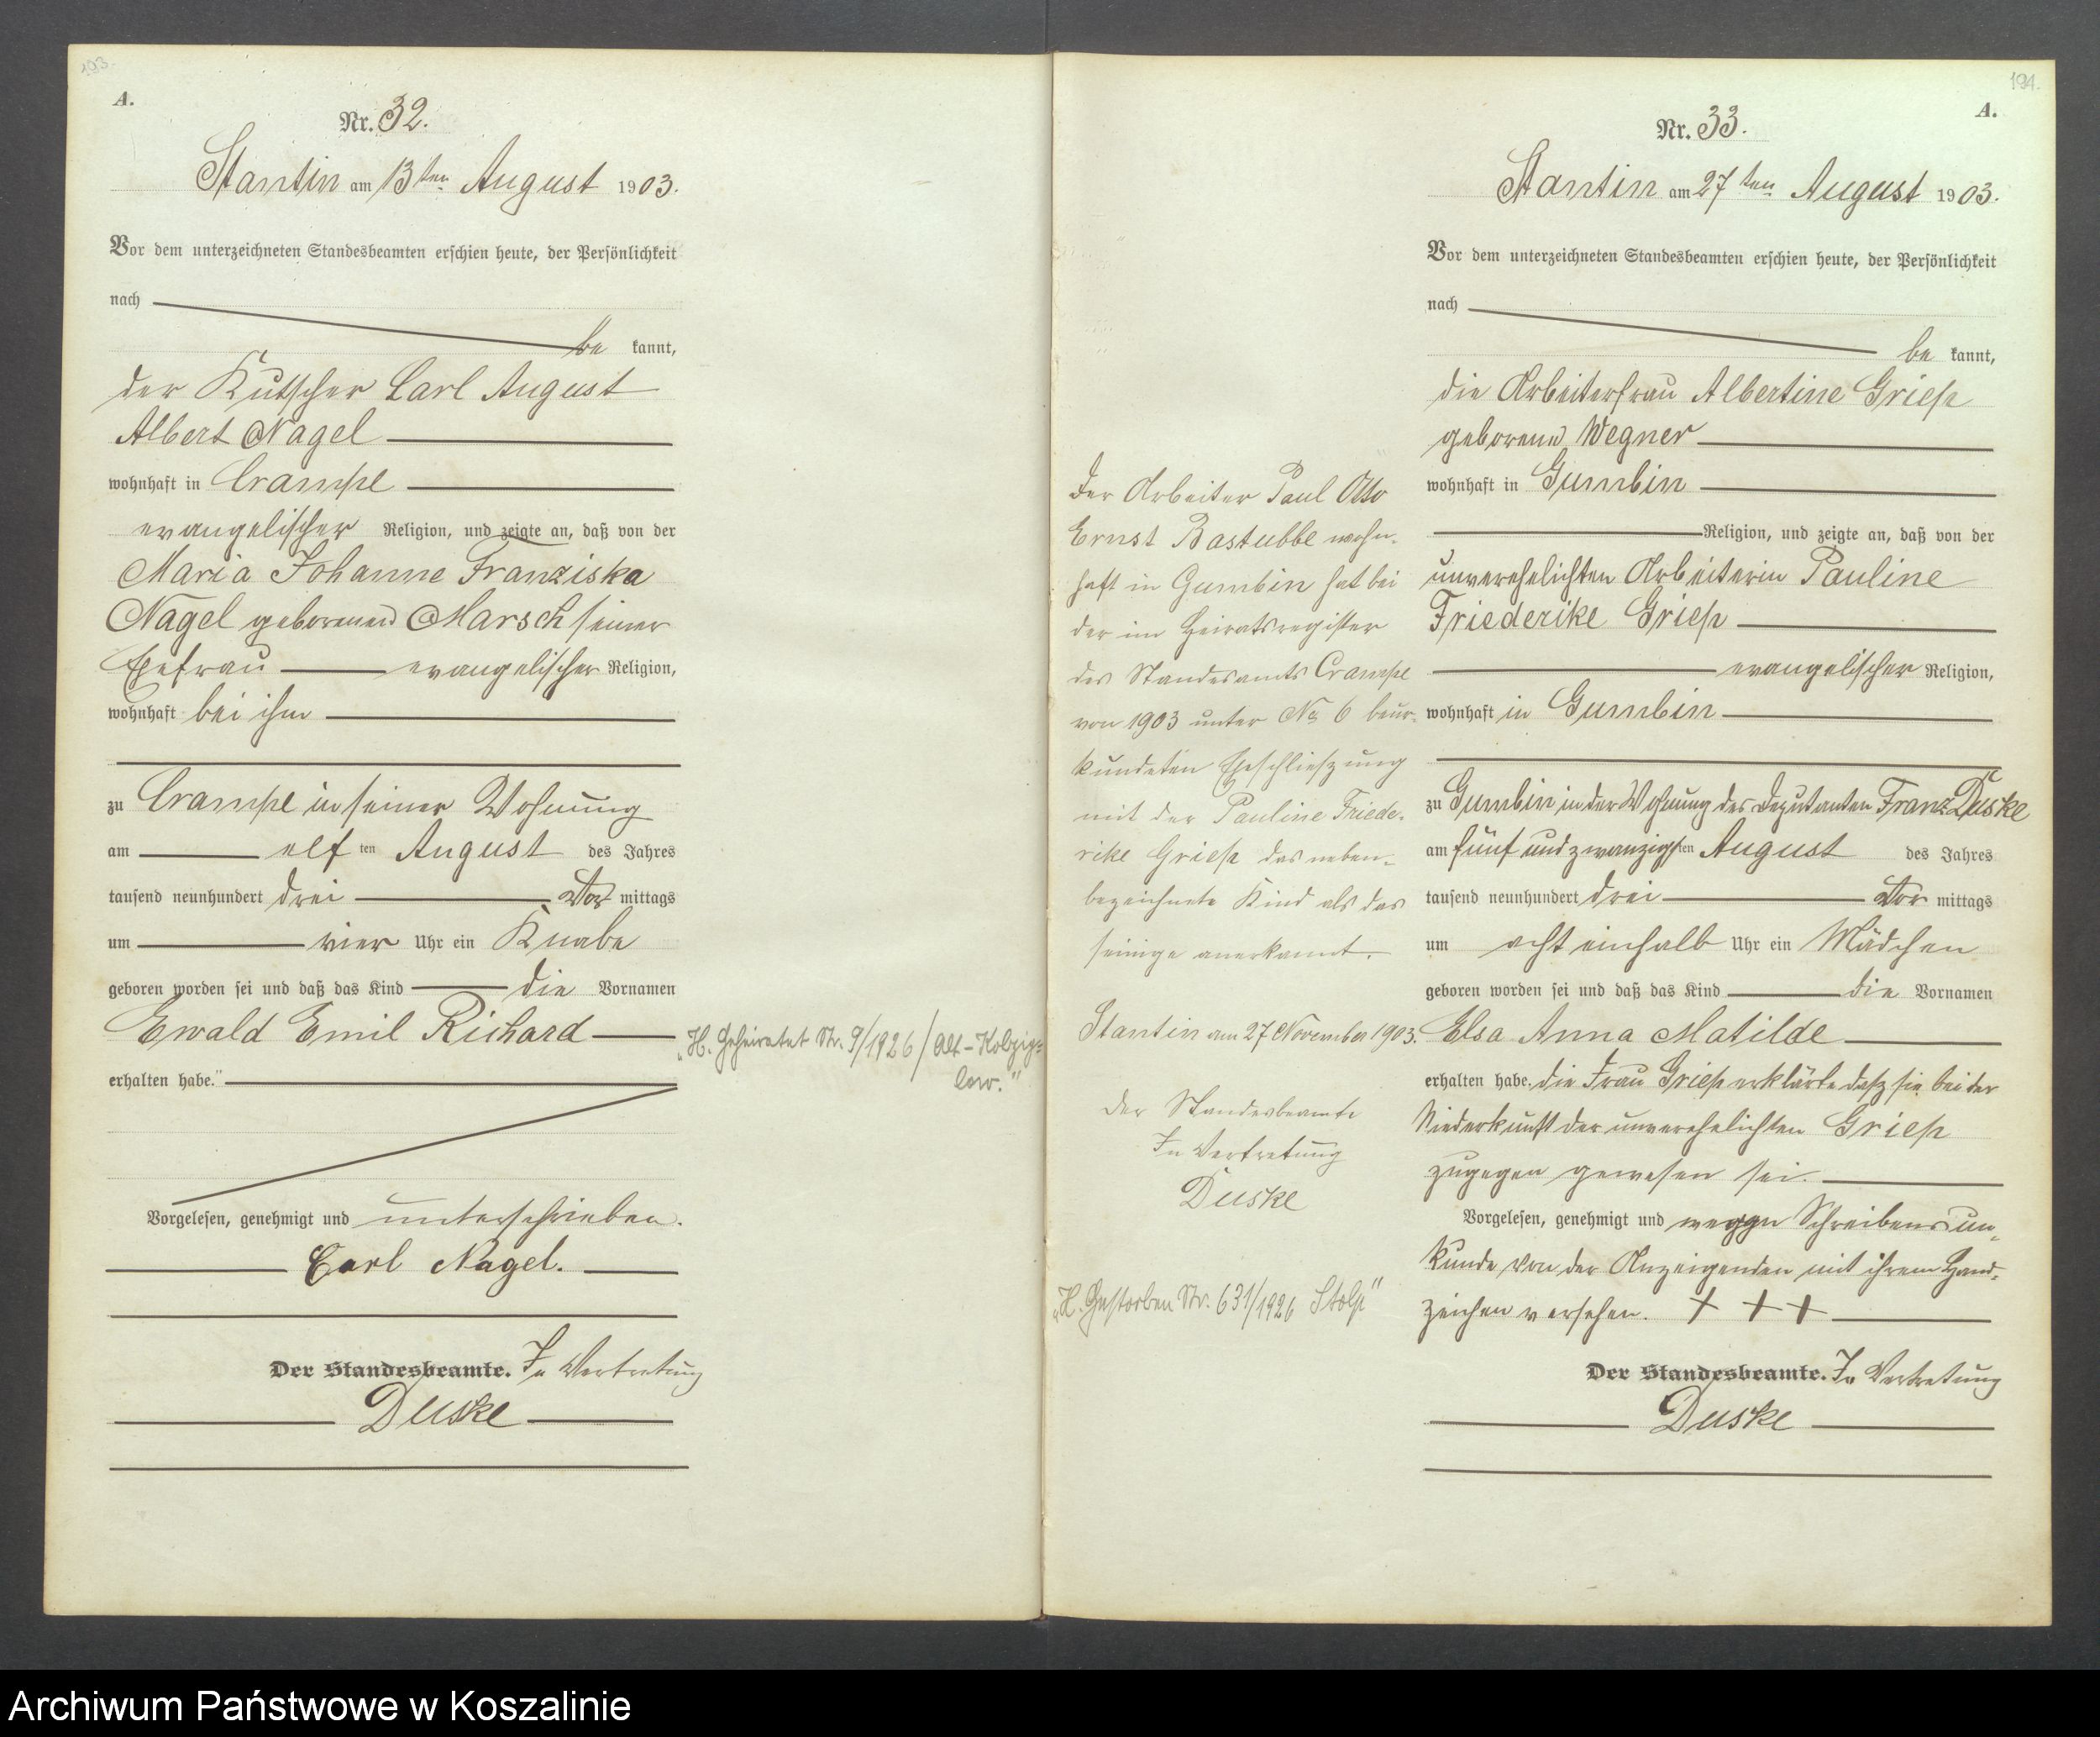 193.
A.
Nr. 32.
Stantin am 13 ten August 1903.
Vor dem unterzeichneten Standesbeamten erschien heute, der Persönlichkeit
nach
be kannt,
der Kutscher Carl August
Albert Nagel
wohnhaft in Crampe
evangelischer Religion, und zeigte an, daß von der
Maria Johanne Franziska
Nagel geborenen Marsch seiner
Ehefrau evangelischer Religion,
wohnhaft bei ihm
zu Crampe in seiner Wohnung
am elf ten August des Jahres
tausend neunhundert drei Vor mittags
um vier Uhr ein Knabe
geboren worden sei und daß das Kind die Vornamen
Ewald Emil Richard
erhalten habe."
Vorgelesen, genehmigt und unterschrieben.
Carl Nagel.
Der Standesbeamte. In Vertretung
Duske
„H. Geheiratet Nr. 9/1926/ Alt-Kolzig-
low."
194.
A.
Nr. 33.
Stantin am 27 ten August 1903.
Vor dem unterzeichneten Standesbeamten erschien heute, der Persönlichkeit
nach
be kannt,
die Arbeiterfrau Albertine Griep
geborene Wegner
wohnhaft in Gumbin
Religion, und zeigte an, daß von der
unverehelichten Arbeiterin Pauline
Friederike Griep
evangelischer Religion,
wohnhaft in Gumbin
zu Gumbin in der Wohnung des Deputanten Franz Duske
am fünf und zwanzigsten August des Jahres
tausend neunhundert drei Vor mittags
um acht einhalb Uhr ein Mädchen
geboren worden sei und daß das Kind die Vornamen
Elsa Anna Matilde
erhalten habe. die Frau Griep erklärte dasz sie bei der
Niederkunft der unverehelichten Griep
zugegen gewesen sei.
Vorgelesen, genehmigt und wegen Schreibens un-
kunde von der Anzeigenden mit ihrem Hand-
zeichen versehen. + + +
Der Standesbeamte. In Vertretung
Duske
Der Arbeiter Paul Otto
Ernst Bastubbe wohn-
haft in Gumbin hat bei
der im Heiratsregister
des Standesamts Crampe
von 1903 unter No 6 beur-
kundeten Eheschlieszung
mit der Pauline Friede-
rike Griep das neben-
bezeichnete Kind als das
seinige anerkannt.
Stantin am 27 November 1903.
Der Standesbeamte
In Vertretung
Duske
„H. Gestorben Nr. 631/1926 Stolp"
Archiwum Państwowe w Koszalinie